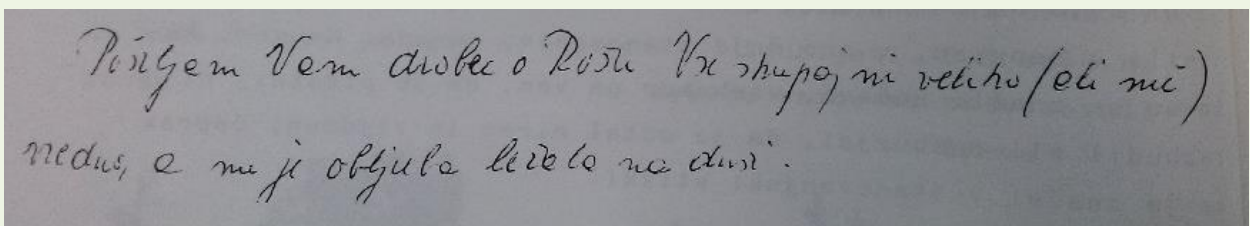 Pošiljam Vam drobec o Rožu Vse skupaj ni veliko (ali nič)
vredno, a mi je obljuba ležala na duši.